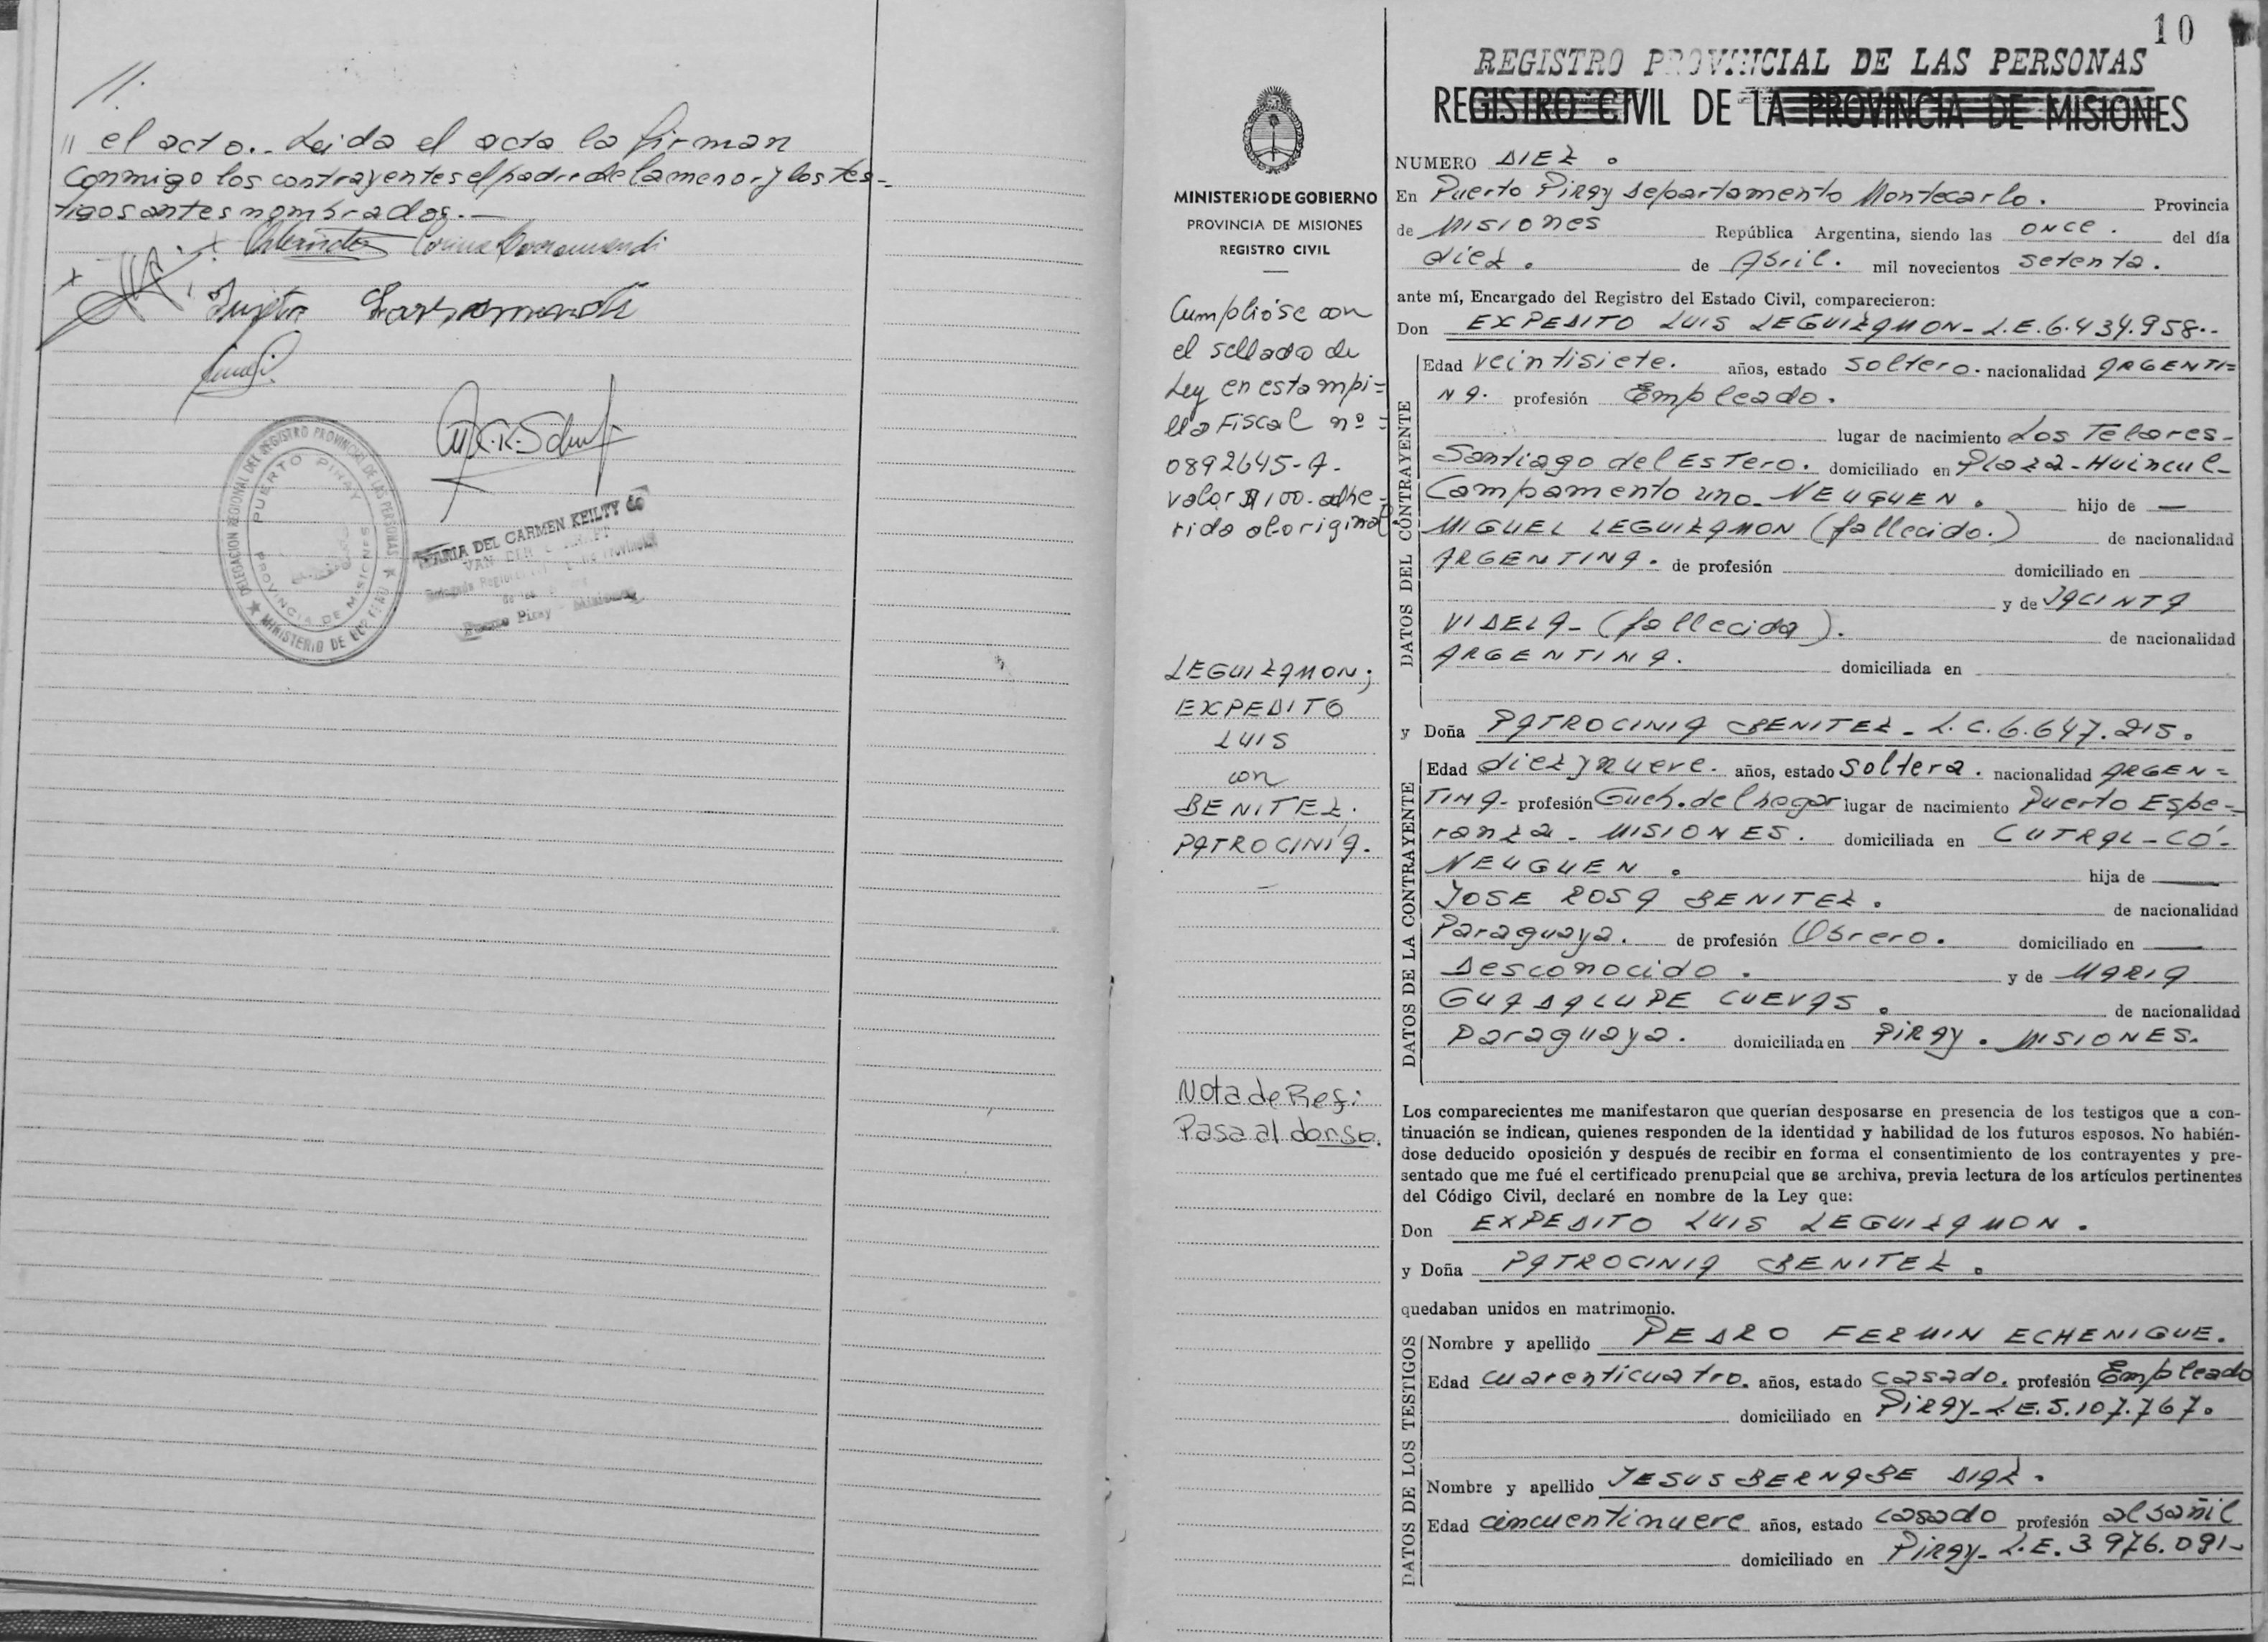 //.
// el acto.- Leida el acta la firman
conmigo los contrayentes el padre de la menor y los tes-
tigos antes nombrados.-
M.C.K.Schuf
DELEGACION REGIONAL DEL REGISTRO PROVINCIAL DE LAS PERSONAS
PUERTO PIRAY
PROVINCIA DE MISIONES
MINISTERIO DE
MARIA DEL CARMEN KEILTY de
VAN DER
Puerto Piray - Misiones
10
REGISTRO PROVINCIAL DE LAS PERSONAS
REGISTRO CIVIL DE LA PROVINCIA DE MISIONES
MINISTERIO DE GOBIERNO
PROVINCIA DE MISIONES
REGISTRO CIVIL
Cumplióse con
el sellado de
Ley en estampi=
lla Fiscal nº =
0892645-A-
valor $100.- adhe=
rida al original.
LEGUIZAMON;
EXPEDITO
LUIS
con
BENITEZ,
PATROCINIA.
Nota de Ref:
Pasa al dorso.
NUMERO DIEZ.
En Puerto Piray Departamento Montecarlo. Provincia
de MISIONES República Argentina, siendo las once. del día
diez. de Abril. mil novecientos setenta.
ante mí, Encargado del Registro del Estado Civil, comparecieron:
Don EXPEDITO LUIS LEGUIZAMON- L.E.6.434.958.-
DATOS DEL CONTRAYENTE
Edad veintisiete. años, estado soltero. nacionalidad ARGENTI=
NA. profesión Empleado.
lugar de nacimiento Los Telares-
Santiago del Estero. domiciliado en Plaza-Huincul-
Campamento uno- NEUQUEN. hijo de —
MIGUEL LEGUIZAMON (fallecido.) de nacionalidad
ARGENTINA. de profesión domiciliado en
y de JACINTA
VIDELA- (fallecida). de nacionalidad
ARGENTINA. domiciliada en
y Doña PATROCINIA BENITEZ- L.C.6.647.215.
DATOS DE LA CONTRAYENTE
Edad diez y nueve. años, estado soltera. nacionalidad ARGEN=
TINA- profesión Queh. del hogar lugar de nacimiento Puerto Espe-
ranza- MISIONES. domiciliada en CUTRAL-CÓ-
NEUQUEN. hija de —
JOSE ROSA BENITEZ. de nacionalidad
Paraguaya. de profesión Obrero. domiciliado en —
Desconocido. y de MARIA
GUADALUPE CUEVAS. de nacionalidad
Paraguaya. domiciliada en PIRAY. MISIONES.
Los comparecientes me manifestaron que querían desposarse en presencia de los testigos que a con-
tinuación se indican, quienes responden de la identidad y habilidad de los futuros esposos. No habién-
dose deducido oposición y después de recibir en forma el consentimiento de los contrayentes y pre-
sentado que me fué el certificado prenupcial que se archiva, previa lectura de los artículos pertinentes
del Código Civil, declaré en nombre de la Ley que:
Don EXPEDITO LUIS LEGUIZAMON.
y Doña PATROCINIA BENITEZ.
quedaban unidos en matrimonio.
DATOS DE LOS TESTIGOS
Nombre y apellido PEDRO FERMIN ECHENIQUE.
Edad cuarenticuatro. años, estado casado. profesión Empleado
domiciliado en PIRAY- L.E.5.107.767.
Nombre y apellido JESUS BERNABE DIAZ.
Edad cincuentinueve años, estado casado profesión albañil
domiciliado en PIRAY- L.E.3 976.091-